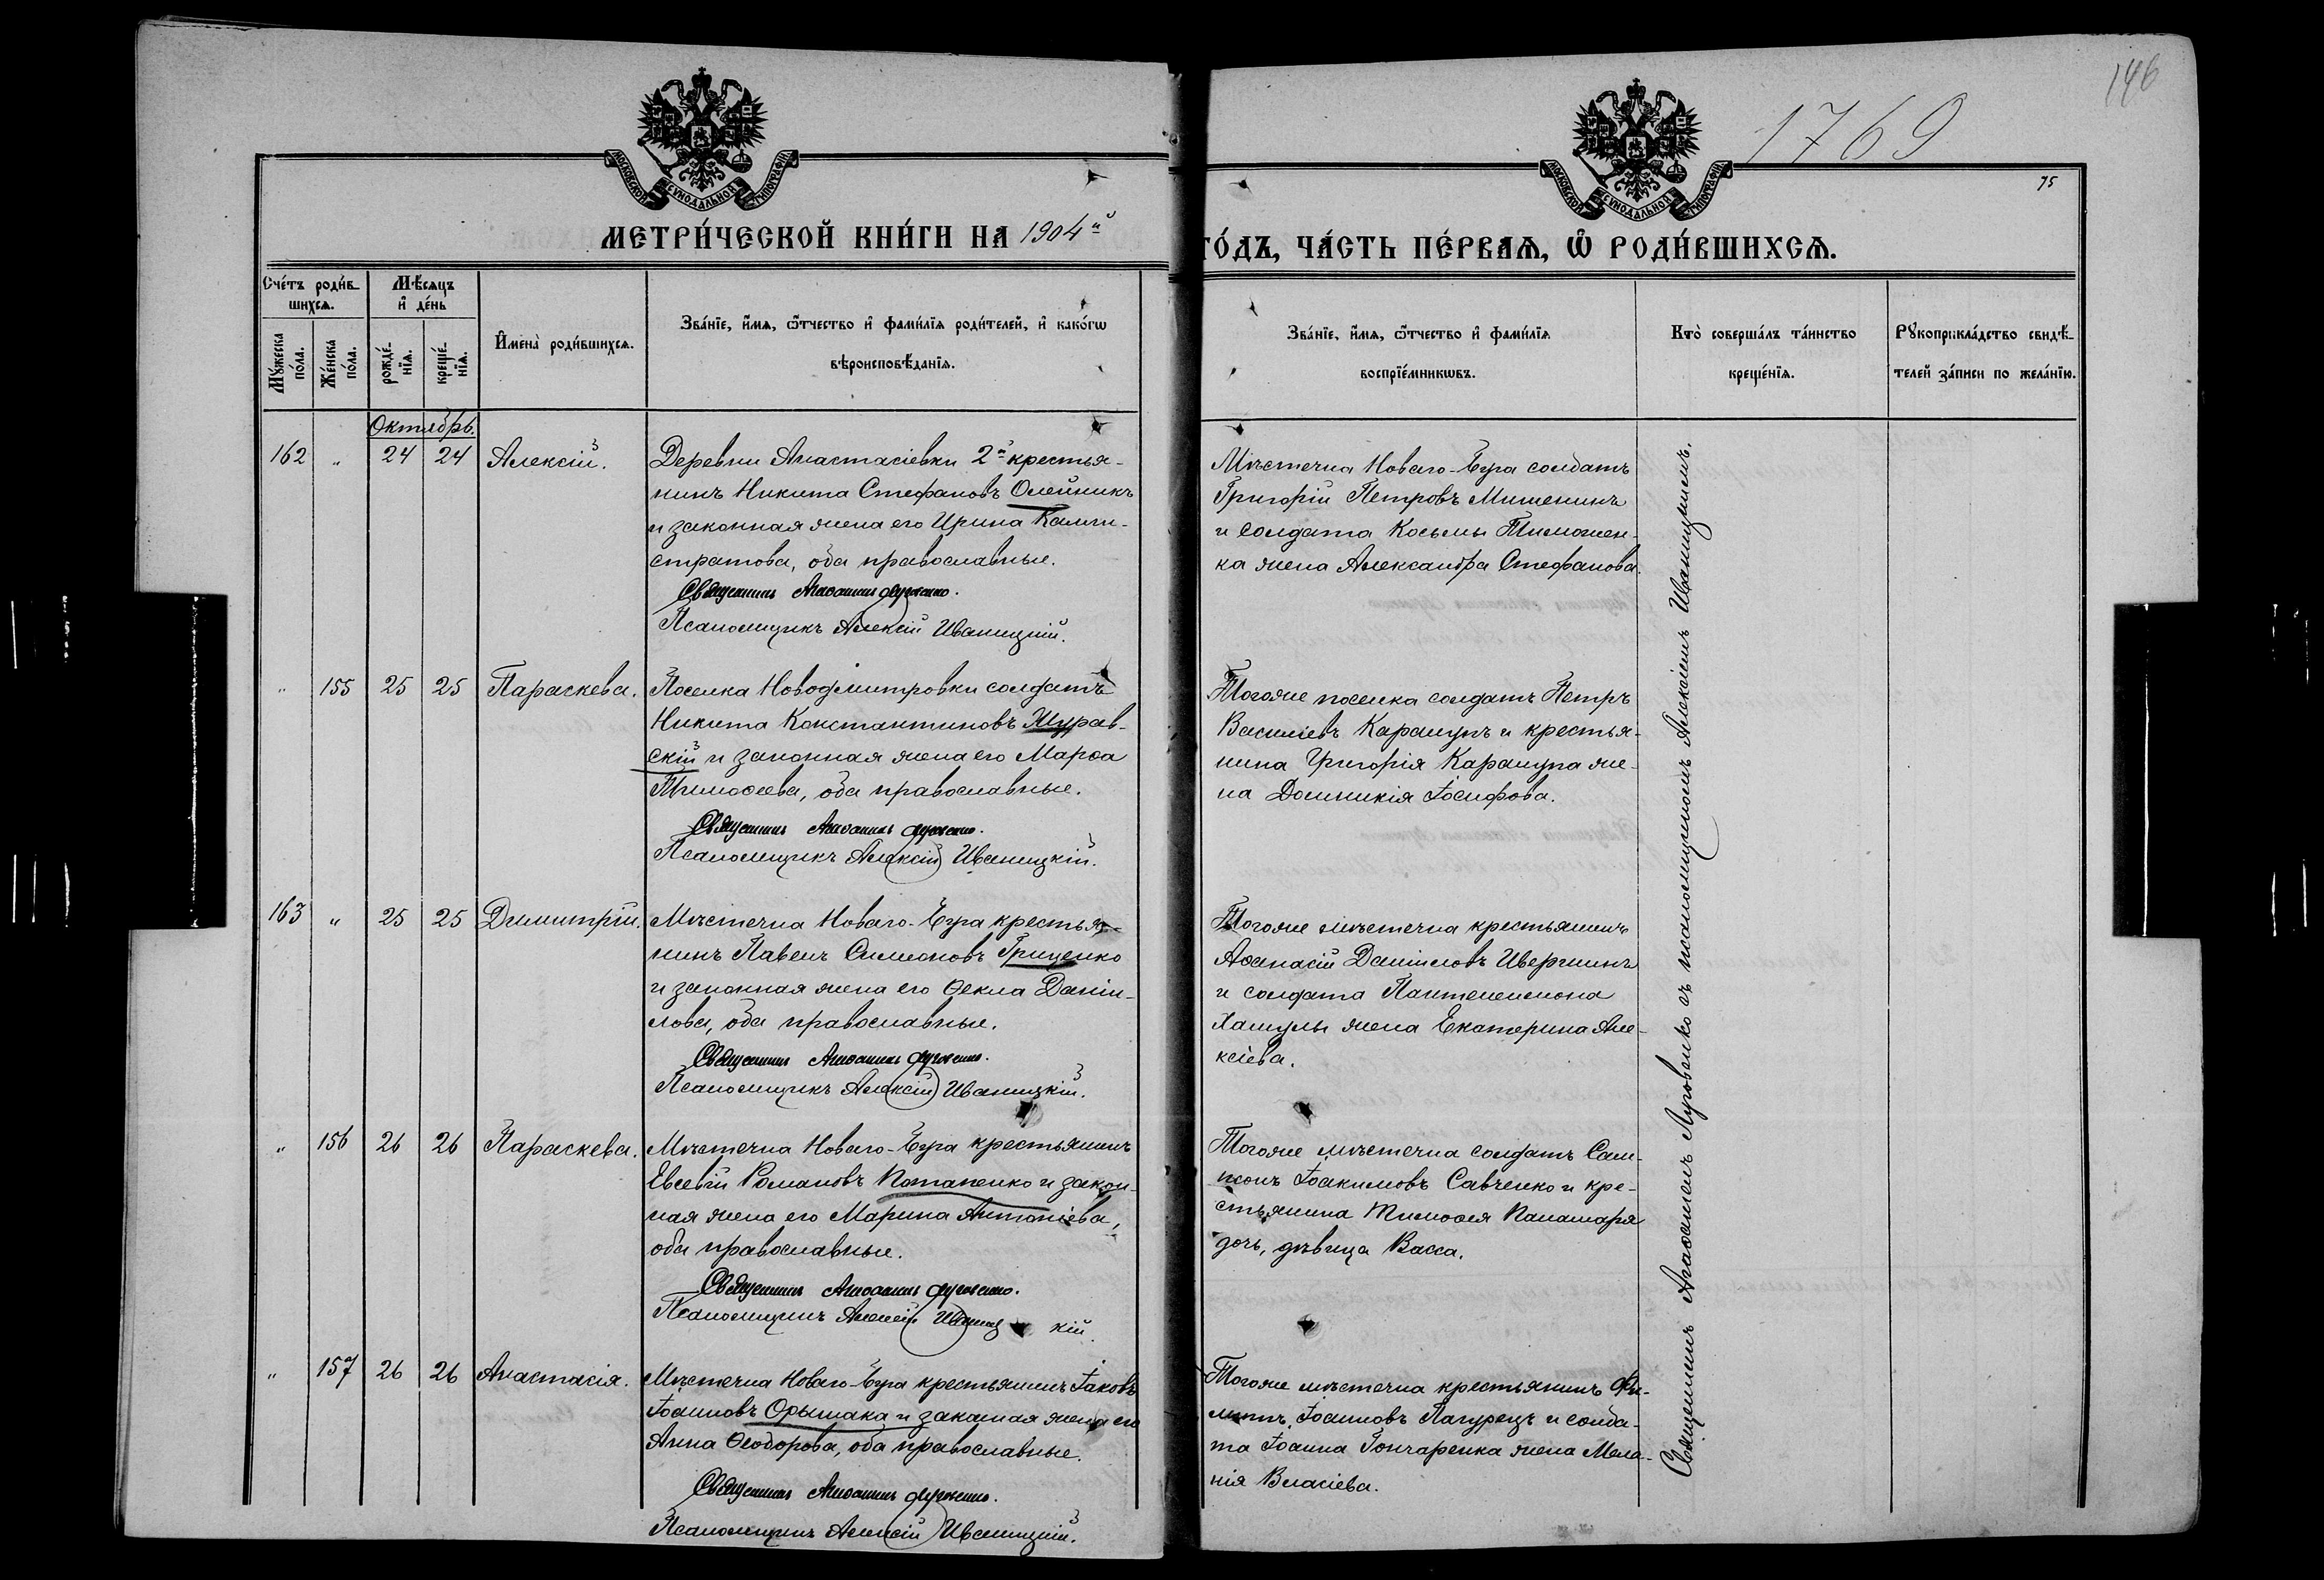 146
1769
75
МОСКОВСКОЙ СѴНОДАЛЬНОЙ ТИПОГРАФІИ
МОСКОВСКОЙ СѴНОДАЛЬНОЙ ТИПОГРАФІИ
МЕТРИ́ЧЕСКОЙ КНИ́ГИ НА 1904й
ГО́ДЪ, ЧА́СТЬ ПЕ́РВАѦ, Ѿ РОДИ́ВШИХСѦ.
Сче́тъ роди́в-
шихсѧ.
Мꙋ́жеска
по́ла.
Же́нска
по́ла.
Мѣ́сѧцъ
и҆ де́нь
рожде́-
нїѧ.
креще́-
нїѧ.
И҆мена̀ роди́вшихсѧ.
Зва́нїе, и҆́мѧ, ѻ҆́тчество и҆ фами́лїѧ роди́телей, и҆ како́гѡ
вѣроисповѣ́данїѧ.
Зва́нїе, и҆́мѧ, ѻ҆́тчество и҆ фами́лїѧ
воспрїе́мникѡвъ.
Кто̀ соверша́лъ та́инство
креще́нїѧ.
Рꙋкоприкла́дство свидѣ́-
телей за́писи по жела́нїю.
Октябрь.
162 " 24 24 Алексій.
Деревни Анастасіевки 2й крестья-
нинъ Никита Стефановъ Олейникъ
и законная жена его Ирина Калли-
стратова, оба православные.
Священникъ
Псаломщикъ Алексій Иваницкій.
Мѣстечка Новаго-Буга солдатъ
Григорій Петровъ Мишенинъ
и солдата Косьмы Тимошен-
ка жена Александра Стефанова.
" 155 25 25 Параскева.
Поселка Новодмитровки солдатъ
Никита Константиновъ Журав-
скій и законная жена его Марѳа
Тимоѳеева, оба православные.
Священникъ
Псаломщикъ Алексій Иваницкій.
Тогоже поселка солдатъ Петръ
Василіевъ Карашупъ и крестья-
нина Григорія Карашупа же-
на Домникія Іосифова.
163 " 25 25 Димитрій.
Мѣстечка Новаго-Буга крестья-
нинъ Павелъ Симеоновъ Гриценко
и законная жена его Ѳекла Даніи-
лова, оба православные.
Священникъ
Псаломщикъ Алексій Иваницкій.
Тогоже мѣстечка крестьянинъ
Аѳанасій Даніиловъ
и солдата Пантелеимона
жена Екатерина Але-
ксіева.
" 156 26 26 Параскева.
Мѣстечка Новаго-Буга крестьянинъ
Евсевій Романовъ Потапенко и закон-
ная жена его Марина Антоніева,
оба православные.
Священникъ
Псаломщикъ Алексій Иваницкій.
Тогоже мѣстечка солдатъ Сам-
псонъ Іоакимовъ Савченко и кре-
стьянина Тимоѳея Паламаря
дочь, дѣвица Васса.
" 157 26 26 Анастасія.
Мѣстечка Новаго-Буга крестьянинъ Іаковъ
Іоанновъ Орышака и законная жена его
Анна Ѳеодорова, оба православные.
Священникъ
Псаломщикъ Алексій Иваницкій.
Тогоже мѣстечка крестьянинъ Фи-
липпъ Іоанновъ Пагурецъ и солда-
та Іоанна Гончаренка жена Мела-
нія Власіева.
Священникъ Агаѳангелъ Луговенко съ псаломщикомъ Алексіемъ Иваницкимъ.